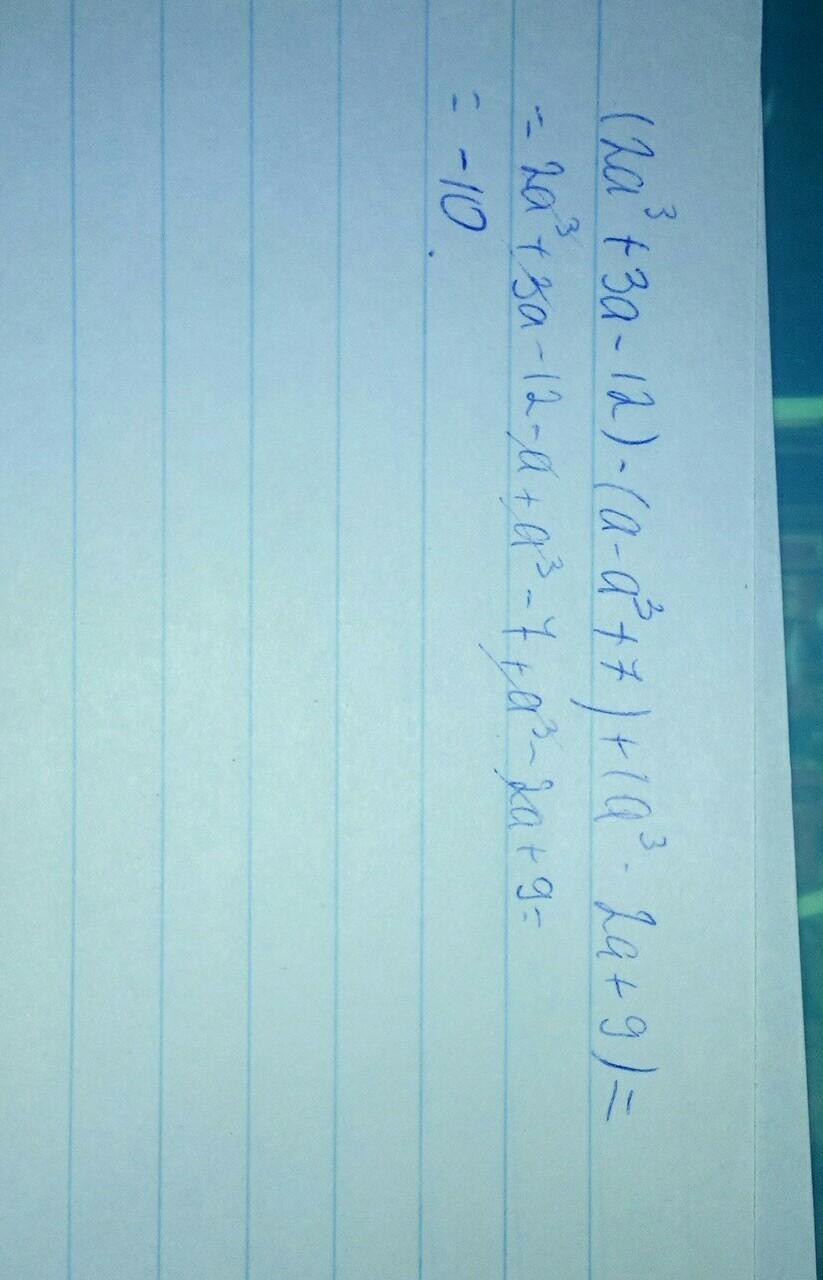 (2a³+3a-12)-(a-a³+7)+(a³-2a+9)=
=2a³+3a-12-a+a³-7+a³-2a+9=
=-10.